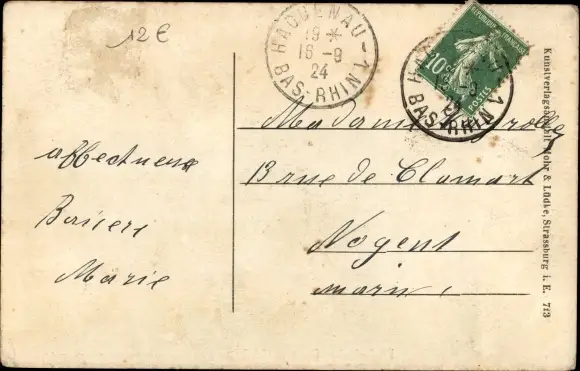 12 €
HAGUENAU-1
19 *
16 -9
24
BAS-RHIN
10 c
POSTES
HAGUENAU-1
BAS-RHIN
affectueux
Baisers
Marie
Madame
13 rue de Clamart
Nogent
marne
Kunstverlagsanstalt Mohr & Lüdke, Strassburg i. E. 713